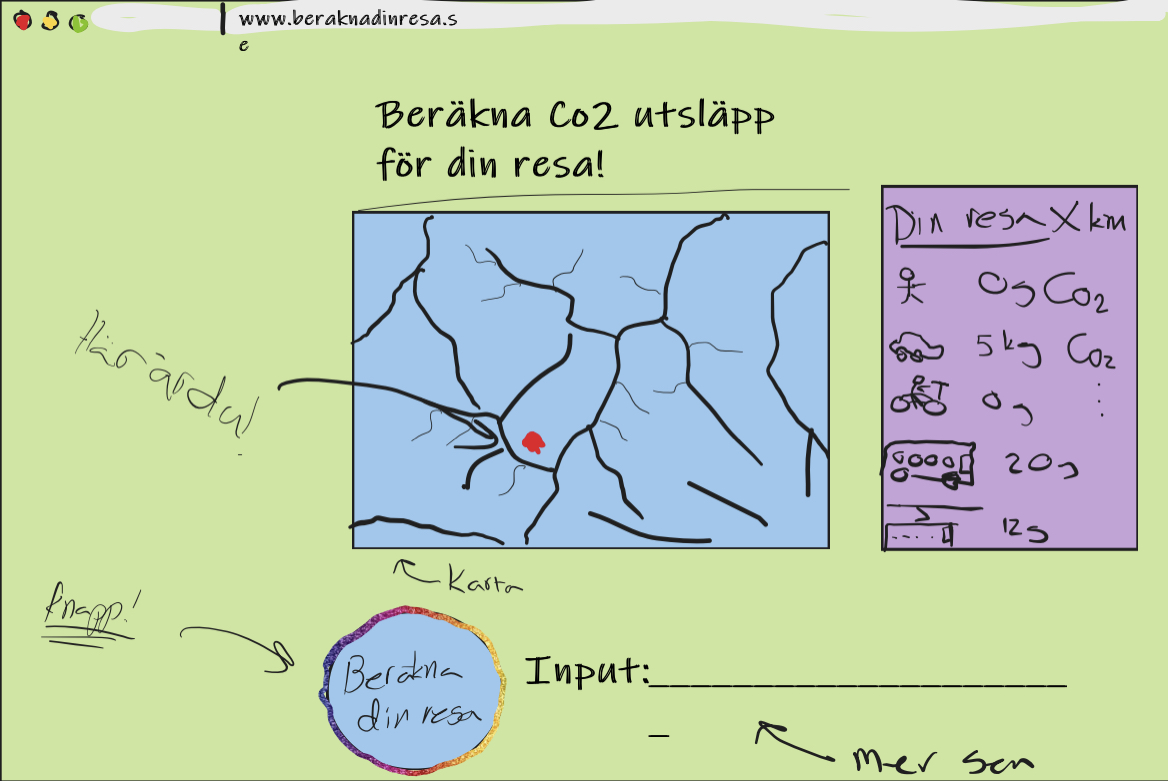 www.beraknadinresa.s
e
Beräkna Co2 utsläpp
för din resa!
Din resa X km
0g Co2
5 kg Co2
0g
20g
12g
Här är du!
Karta
Knapp!
Beräkna
din resa
Input:_____________________
_
mer sen